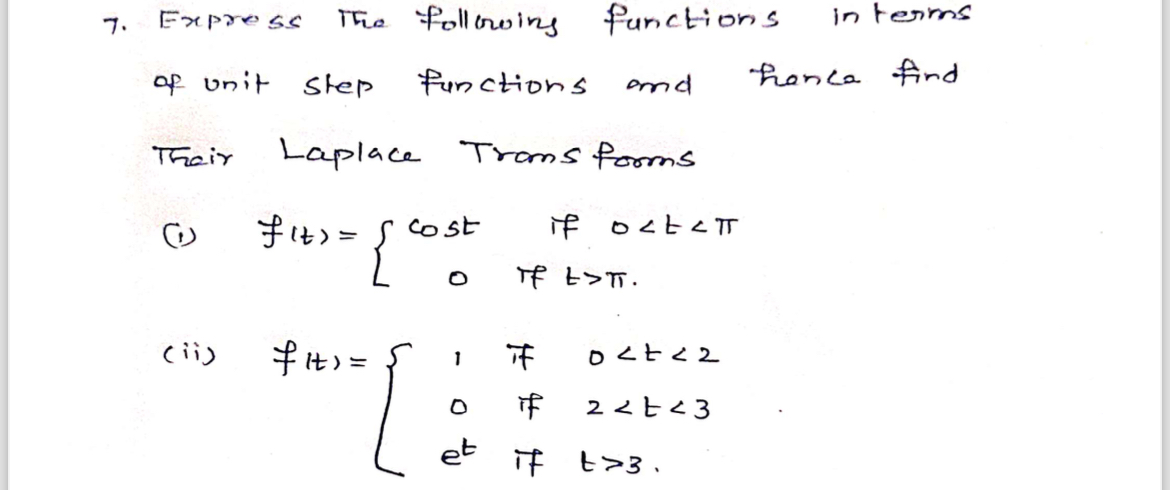 7. Express The following functions in terms
of unit step functions and hence find
Their Laplace Transforms
(i) f(t) = { cost if 0<t<π
0 if t>π.
(ii) f(t) = { 1 if 0<t<2
0 if 2<t<3
e^t if t>3.